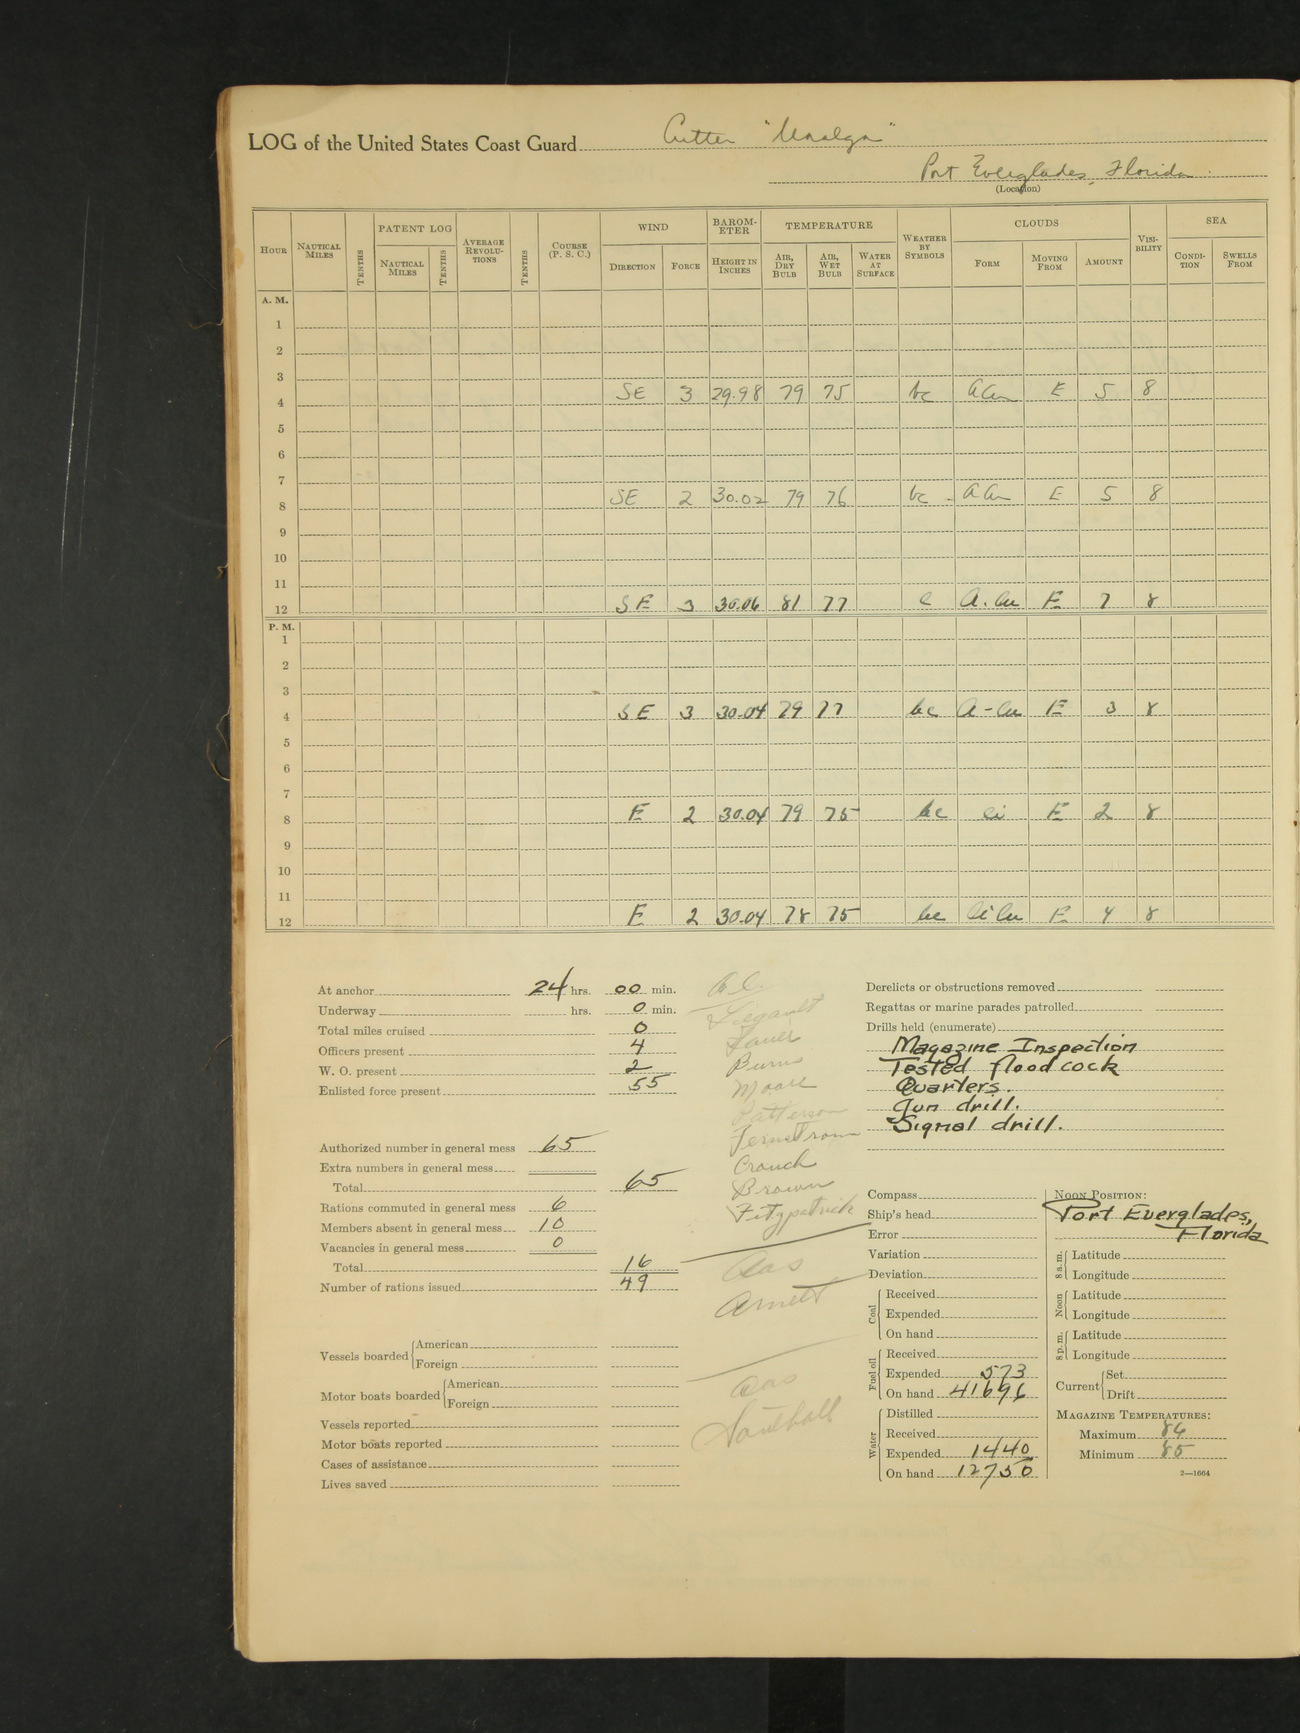 LOG of the United States Coast Guard Cutter "Unalga"
Port Everglades, Florida
(Location)
HOUR NAUTICAL MILES TENTHS PATENT LOG NAUTICAL MILES TENTHS AVERAGE REVOLUTIONS TENTHS COURSE (P. S. C.) WIND DIRECTION FORCE BAROMETER HEIGHT IN INCHES TEMPERATURE AIR, DRY BULB AIR, WET BULB WATER AT SURFACE WEATHER BY SYMBOLS CLOUDS FORM MOVING FROM AMOUNT VISIBILITY SEA CONDITION SWELLS FROM
A. M.
1
2
3
4 SE 3 29.98 79 75 bc A Cu E 5 8
5
6
7
8 SE 2 30.02 79 76 bc A Cu E 5 8
9
10
11
12 SE 3 30.06 81 77 c A. Cu E 7 8
P. M.
1
2
3
4 SE 3 30.04 79 77 bc A-Cu E 3 8
5
6
7
8 E 2 30.04 79 75 bc Ci E 2 8
9
10
11
12 E 2 30.04 78 75 bc Ci Cu E 4 8
At anchor 24 hrs. 00 min.
Underway hrs. 0 min.
Total miles cruised 0
Officers present 4
W. O. present 2
Enlisted force present 55
Authorized number in general mess 65
Extra numbers in general mess
Total 65
Rations commuted in general mess 6
Members absent in general mess 10
Vacancies in general mess 0
Total 16
Number of rations issued 49
Vessels boarded American
Foreign
Motor boats boarded American
Foreign
Vessels reported
Motor boats reported
Cases of assistance
Lives saved
Legault
Sauer
Burns
Moore
Patterson
Fernstrom
Crouch
Brown
Fitzpatrick
Aas
Arnett
Aas
Southall
Derelicts or obstructions removed
Regattas or marine parades patrolled
Drills held (enumerate)
Magazine Inspection
Tested flood cock
Quarters.
Gun drill.
Signal drill.
Compass
Ship's head
Error
Variation
Deviation
Coal Received
Expended
On hand
Fuel oil Received
Expended 573
On hand 41696
Water Distilled
Received
Expended 1440
On hand 12750
NOON POSITION:
Port Everglades,
Florida
8 a. m. Latitude
Longitude
Noon Latitude
Longitude
8 p. m. Latitude
Longitude
Current Set
Drift
MAGAZINE TEMPERATURES:
Maximum 86
Minimum 85
2—1664